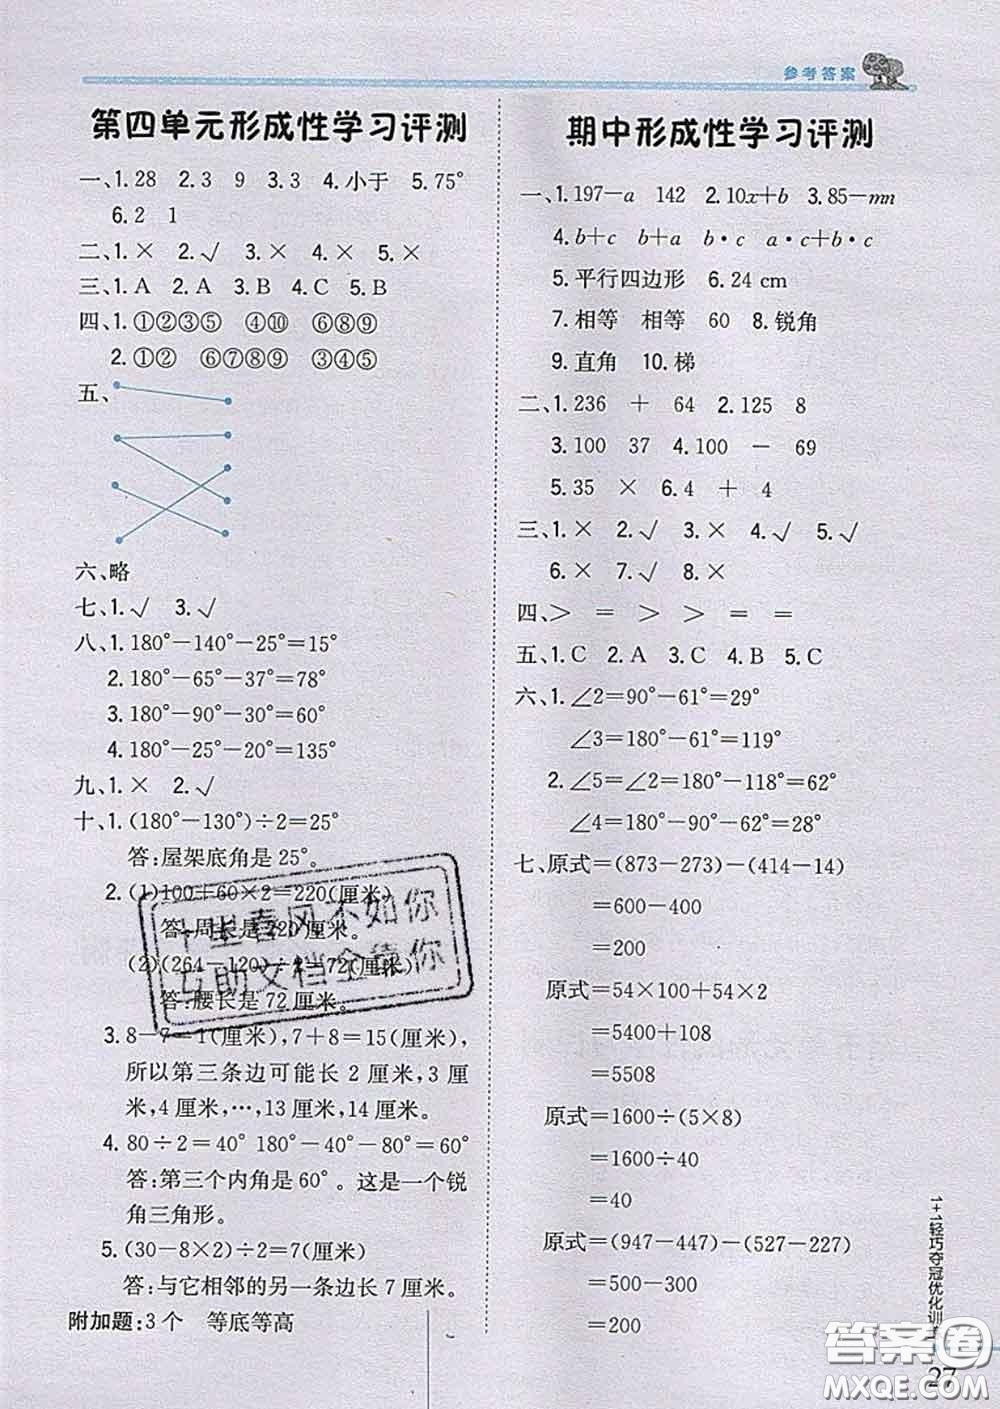 参考答案
第四单元形成性学习评测
一、1.28 2.3 9 3.3 4.小于 5.75°
6.2 1
二、1.× 2.√ 3.× 4.× 5.×
三、1.A 2.A 3.B 4.C 5.B
四、1.①②③⑤ ④⑩ ⑥⑧⑨
2.①② ⑥⑦⑧⑨ ③④⑤
五、
六、略
七、1.√ 3.√
八、1.180°-140°-25°=15°
2.180°-65°-37°=78°
3.180°-90°-30°=60°
4.180°-25°-20°=135°
九、1.× 2.√
十、1.(180°-130°)÷2=25°
答:屋架底角是25°。
2.(1)100+60×2=220(厘米)
答:周长是220厘米。
(2)(264-120)÷2=72(厘米)
答:腰长是72厘米。
3.8-7=1(厘米),7+8=15(厘米)
所以第三条边可能长2厘米,3厘
米,4厘米,…,13厘米,14厘米。
4.80÷2=40° 180°-40°-80°=60°
答:第三个内角是60°。这是一个锐
角三角形。
5.(30-8×2)÷2=7(厘米)
答:与它相邻的另一条边长7厘米。
附加题:3个 等底等高
十里春风不如你
互助文档全靠你
期中形成性学习评测
一、1.197-a 142 2.10x+b 3.85-mn
4.b+c b+a b·c a·c+b·c
5.平行四边形 6.24 cm
7.相等 相等 60 8.锐角
9.直角 10.梯
二、1.236 + 64 2.125 8
3.100 37 4.100 - 69
5.35 × 6.4 + 4
三、1.× 2.√ 3.× 4.√ 5.√
6.× 7.√ 8.×
四、> = > > = =
五、1.C 2.A 3.C 4.B 5.C
六、1.∠2=90°-61°=29°
∠3=180°-61°=119°
2.∠5=∠2=180°-118°=62°
∠4=180°-90°-62°=28°
七、原式=(873-273)-(414-14)
=600-400
=200
原式=54×100+54×2
=5400+108
=5508
原式=1600÷(5×8)
=1600÷40
=40
原式=(947-447)-(527-227)
=500-300
=200
1+1轻巧夺冠优化训
27
答案圈
MXQE.COM